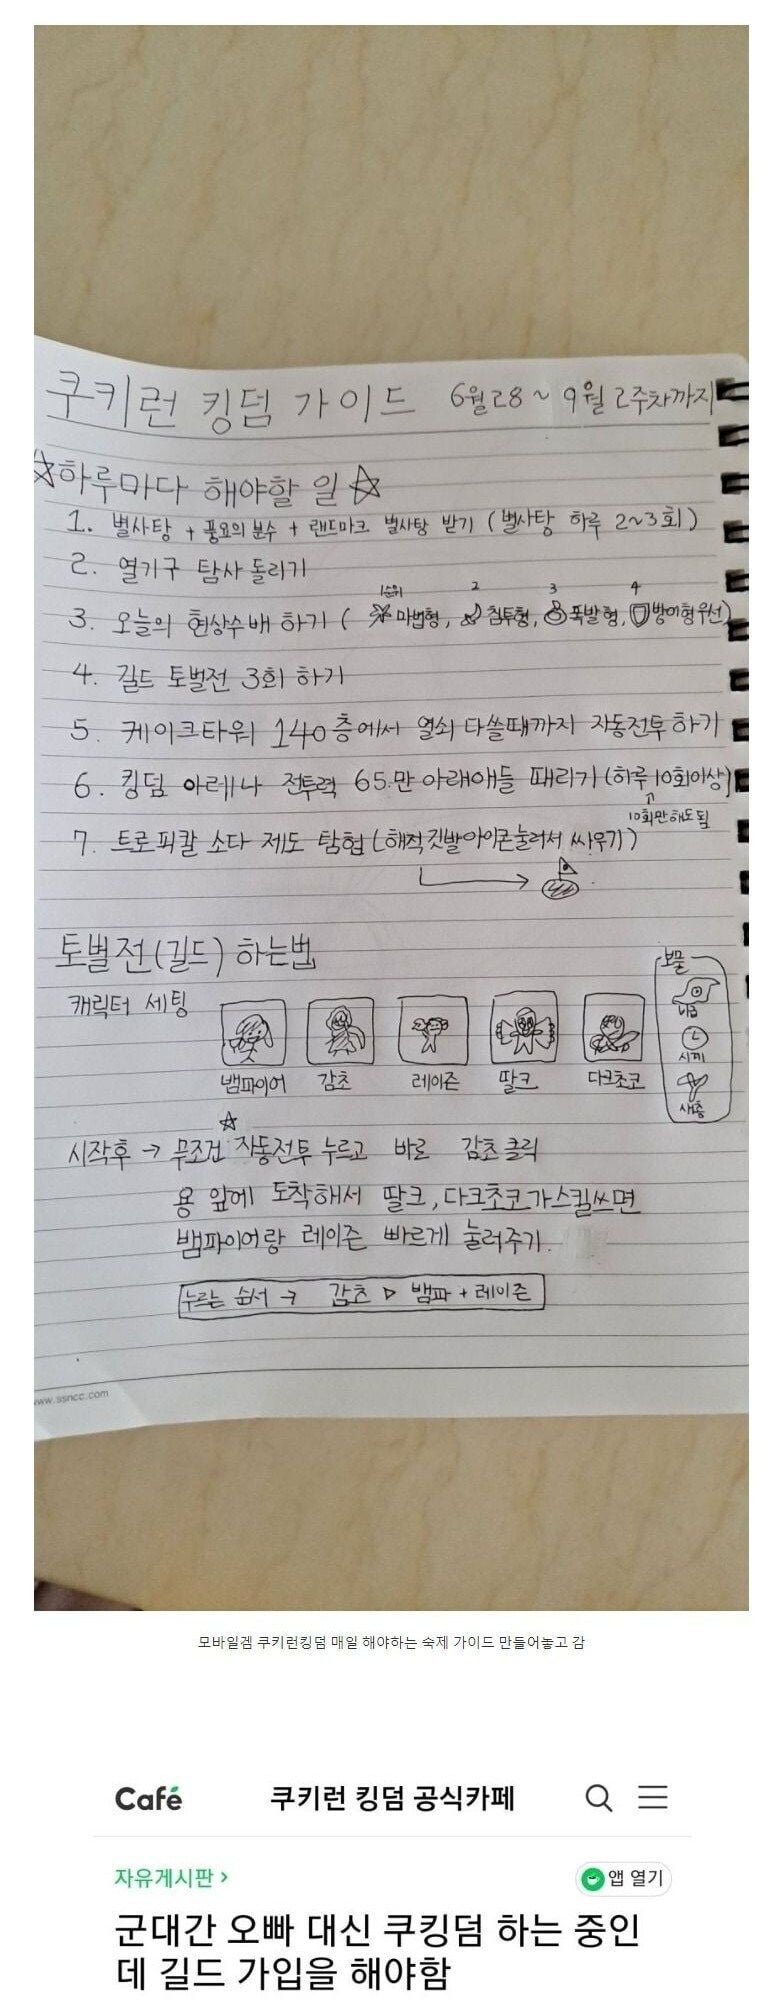 쿠키런 킹덤 가이드 6월28~9월2주차까지
☆하루마다 해야할 일☆
1. 별사탕 + 풍요의 분수 + 랜드마크 별사탕 받기 (별사탕 하루 2~3회)
2. 열기구 탐사 돌리기
1순위 2 3 4
3. 오늘의 현상수배 하기 ( 마법형, 침투형, 폭발형, 방어형우선)
4. 길드 토벌전 3회 하기
5. 케이크타워 140층에서 열쇠 다쓸때까지 자동전투하기
6. 킹덤 아레나 전투력 65만아래애들 때리기 (하루 10회이상)
10회만해도됨
7. 트로피칼 소다 제도 탐험 (해적깃발아이콘눌러서 싸우기)
토벌전(길드) 하는법
보물
캐릭터 세팅
시끼
뱀파이어 감초 레이즌 딸크 다크초코
새총
시작후 → 무조건 자동전투 누르고 바로 감초클릭
용 앞에 도착해서 딸크, 다크초코가스킬쓰면
뱀파이어랑 레이즌 빠르게 눌러주기.
누르는 순서 → 감초 ▷ 뱀파 + 레이즌
www.ssncc.com
모바일겜 쿠키런킹덤 매일 해야하는 숙제 가이드 만들어놓고 감
Café 쿠키런 킹덤 공식카페
자유게시판 > 앱 열기
군대간 오빠 대신 쿠킹덤 하는 중인
데 길드 가입을 해야함